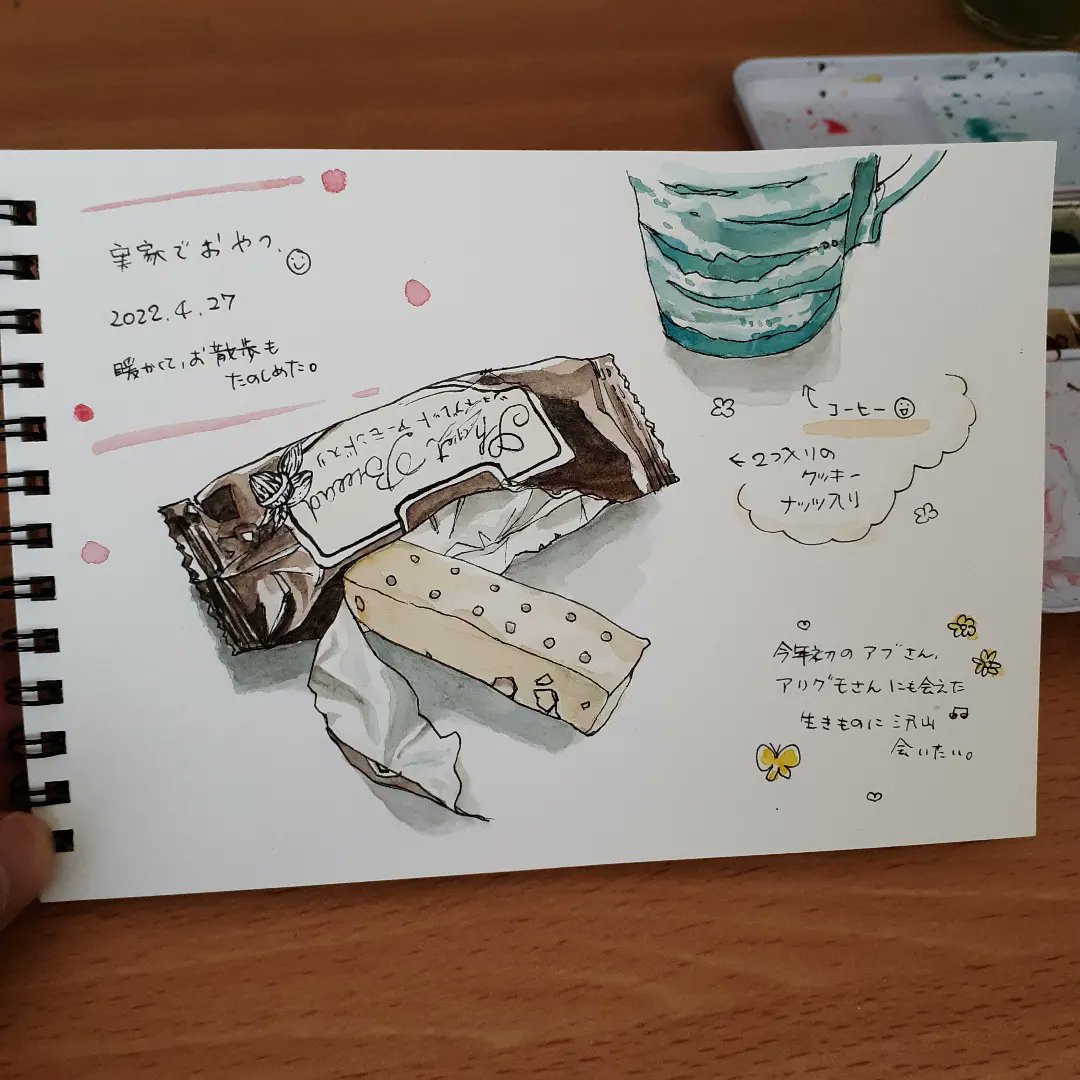 実家でおやつ、
2022.4.27
暖かくて、お散歩も
たのしめた。
Bread
ショートブレッド アーモンド入り
コーヒー
←2つ入りの
クッキー
ナッツ入り
今年初のアブさん、
アリグモさんにも会えた
生きものに沢山
会いたい。